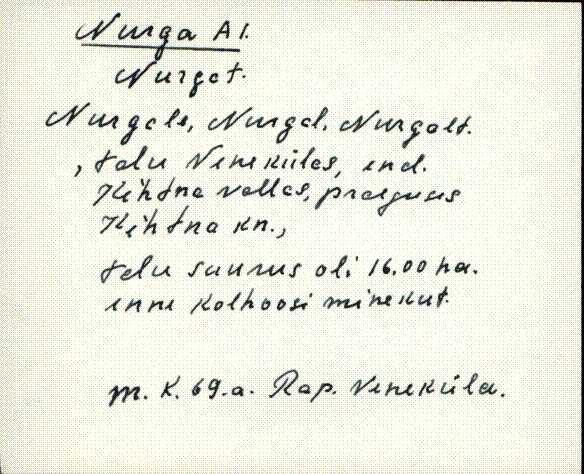 Nurga A1.
Nurgat.
Nurgale, Nurgal, Nurgalt.
, talu Venekülas, end.
Kehtna vallas, praeguses
Kehtna kn.,
talu suurus oli 16,00 ha.
enne kolhoosi minekut.
M. K. 69.a. Rap. Veneküla.